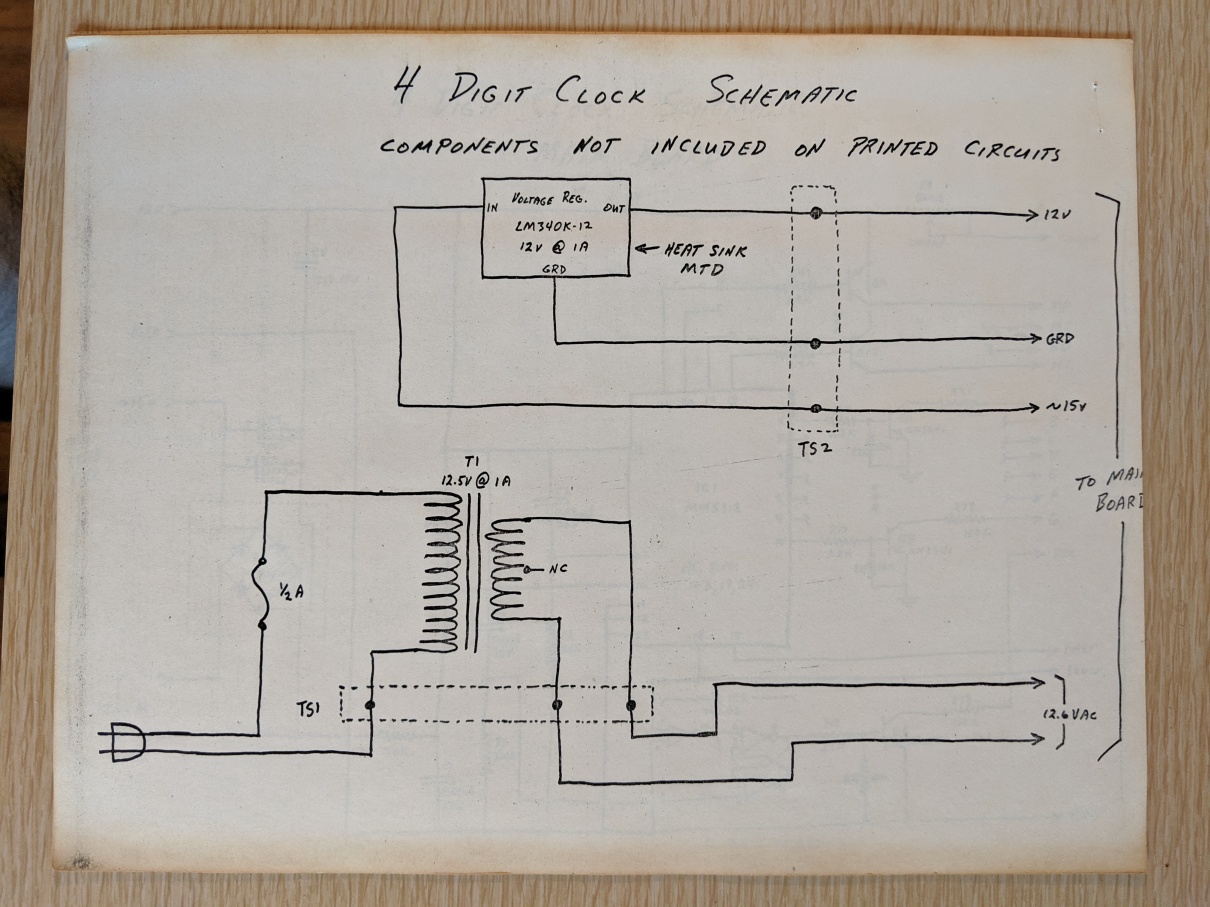 4 DIGIT CLOCK SCHEMATIC
COMPONENTS NOT INCLUDED ON PRINTED CIRCUITS
VOLTAGE REG.
IN
OUT
LM340K-12
12V @ 1A
GRD
HEAT SINK
MTD
12V
GRD
~15V
TS2
TO MAIN
BOARD
T1
12.5V @ 1A
NC
1/2 A
TS1
12.6 VAC